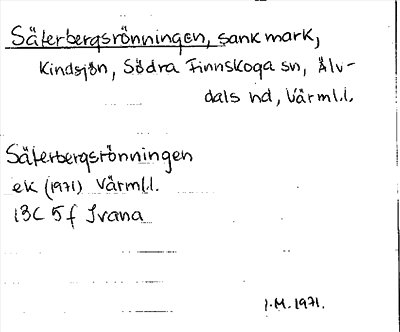 Säterbergsrönningen, sank mark,
Kindsjön, Södra Finnskoga sn, Älv-
dals hd, Värml.l.
Säterbergsrönningen
ek (1971) Värml.l.
13C 5f Ivana
I.M. 1971.